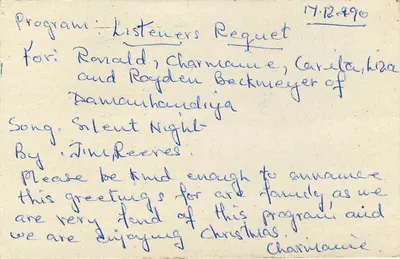 17.12.1990
Program: Listeners Requet
For: Ronald, Charmaine, Carita, Liza
and Royden Beckmeyer of
Damanhandiya
Song. Silent Night
By. Jim Reeves.
Please be kind enough to announce
this greetings for are family, as we
are very fond of this program, and
we are enjoying Christmas.
Charmaine.